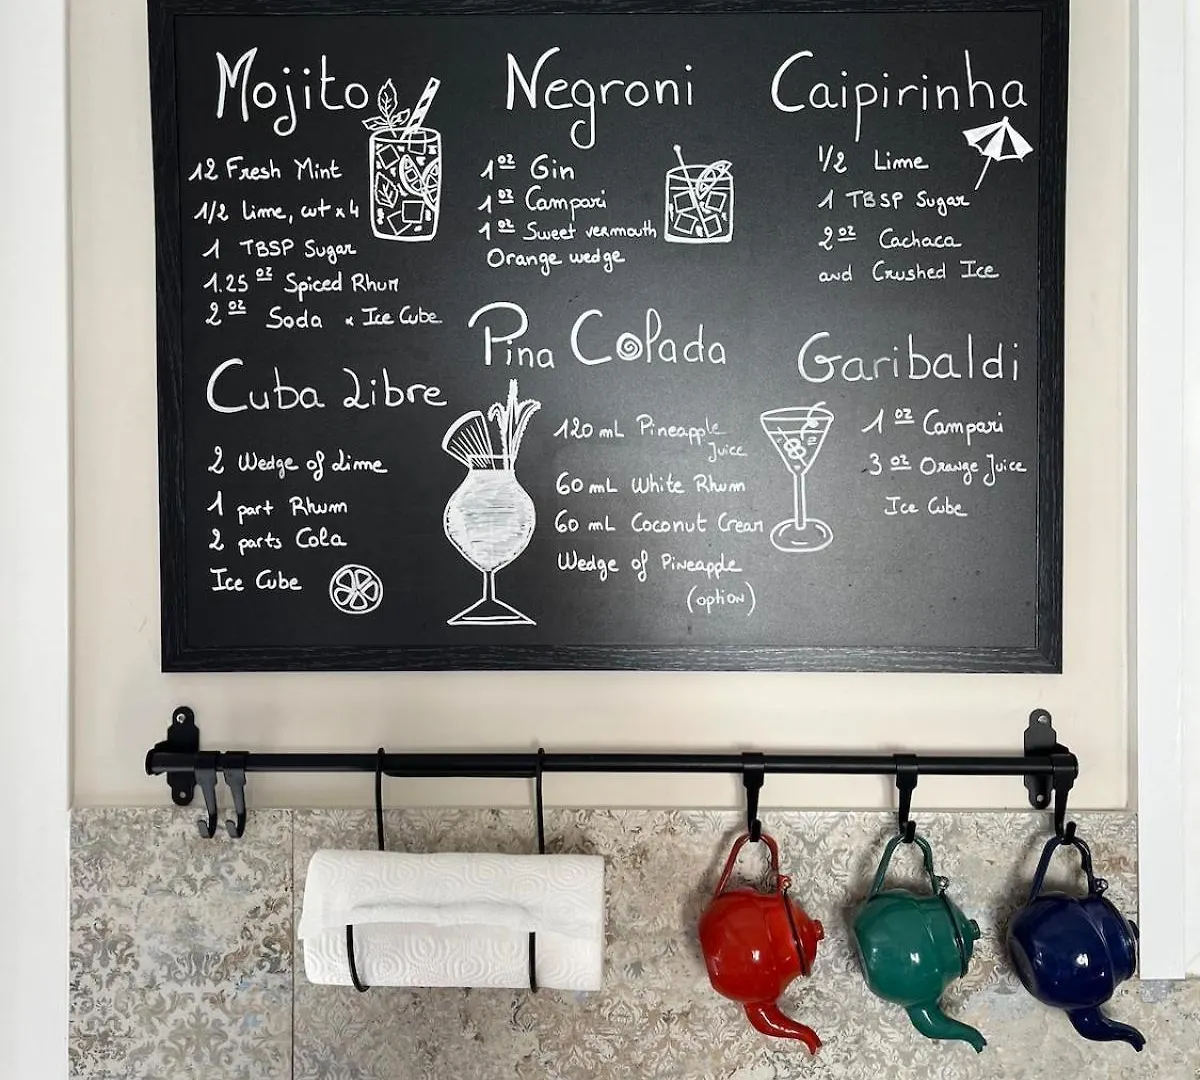 Mojito
12 Fresh Mint
1/2 Lime, cut x 4
1 TBSP Sugar
1.25 oz Spiced Rhum
2 oz Soda x Ice Cube
Negroni
1 oz Gin
1 oz Campari
1 oz Sweet vermouth
Orange wedge
Caipirinha
1/2 Lime
1 TBSP Sugar
2 oz Cachaca
and Crushed Ice
Cuba Libre
2 Wedge of Lime
1 part Rhum
2 parts Cola
Ice Cube
Pina Colada
120 mL Pineapple
Juice
60 mL White Rhum
60 mL Coconut Cream
Wedge of Pineapple
(option)
Garibaldi
1 oz Campari
3 oz Orange Juice
Ice Cube